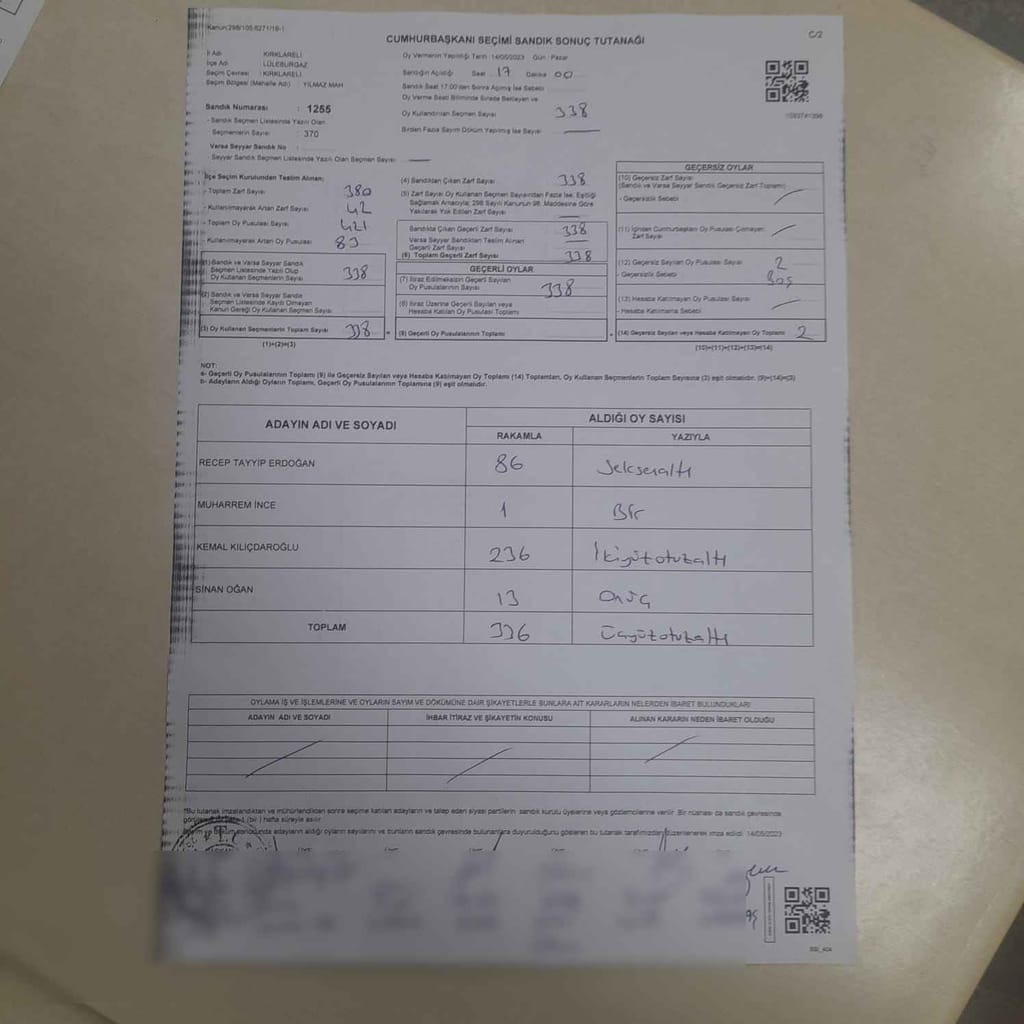 Kanun:298/105.6271/16-1
C/2
CUMHURBAŞKANI SEÇİMİ SANDIK SONUÇ TUTANAĞI
İl Adı : KIRKLARELİ
İlçe Adı : LÜLEBURGAZ
Seçim Çevresi : KIRKLARELİ
Seçim Bölgesi (Mahalle Adı) : YILMAZ MAH
Sandık Numarası : 1255
- Sandık Seçmen Listesinde Yazılı Olan
Seçmenlerin Sayısı : 370
Varsa Seyyar Sandık No :
Seyyar Sandık Seçmen Listesinde Yazılı Olan Seçmen Sayısı
Oy Vermenin Yapıldığı Tarih : 14/05/2023 Gün : Pazar
Sandığın Açıldığı Saat 17 Dakika 00
Sandık Saat 17:00'den Sonra Açılmış İse Sebebi
Oy Verme Saati Bitiminde Sırada Bekleyen ve
Oy Kullandırılan Seçmen Sayısı 338
Birden Fazla Sayım Döküm Yapılmış İse Sayısı
İlçe Seçim Kurulundan Teslim Alınan;
- Toplam Zarf Sayısı 380
- Kullanılmayarak Artan Zarf Sayısı 42
- Toplam Oy Pusulası Sayısı 421
- Kullanılmayarak Artan Oy Pusulası 83
(1) Sandık ve Varsa Seyyar Sandık
Seçmen Listesinde Yazılı Olup
Oy Kullanan Seçmenlerin Sayısı 338
(2) Sandık ve Varsa Seyyar Sandık
Seçmen Listesinde Kaydı Olmayan
Kanun Gereği Oy Kullanan Seçmen Sayısı
(3) Oy Kullanan Seçmenlerin Toplam Sayısı 338
(1)+(2)=(3)
(4) Sandıktan Çıkan Zarf Sayısı 338
(5) Zarf Sayısı Oy Kullanan Seçmen Sayısından Fazla İse, Eşitliği
Sağlamak Amacıyla; 298 Sayılı Kanunun 98. Maddesine Göre
Yakılarak Yok Edilen Zarf Sayısı
Sandıkta Çıkan Geçerli Zarf Sayısı 338
Varsa Seyyar Sandıktan Teslim Alınan
Geçerli Zarf Sayısı
(6) Toplam Geçerli Zarf Sayısı 338
GEÇERLİ OYLAR
(7) İtiraz Edilmeksizin Geçerli Sayılan
Oy Pusulalarının Sayısı 338
(8) İtiraz Üzerine Geçerli Sayılan veya
Hesaba Katılan Oy Pusulası Toplamı
(9) Geçerli Oy Pusulalarının Toplamı
GEÇERSİZ OYLAR
(10) Geçersiz Zarf Sayısı
(Sandık ve Varsa Seyyar Sandık Geçersiz Zarf Toplamı)
- Geçersizlik Sebebi
(11) İçinden Cumhurbaşkanı Oy Pusulası Çıkmayan
Zarf Sayısı
(12) Geçersiz Sayılan Oy Pusulası Sayısı 2
- Geçersizlik Sebebi Boş
(13) Hesaba Katılmayan Oy Pusulası Sayısı
- Hesaba Katılmama Sebebi
(14) Geçersiz Sayılan veya Hesaba Katılmayan Oy Toplamı 2
(10)+(11)+(12)+(13)=(14)
NOT:
a- Geçerli Oy Pusulalarının Toplamı (9) ile Geçersiz Sayılan veya Hesaba Katılmayan Oy Toplamı (14) Toplamları, Oy Kullanan Seçmenlerin Toplam Sayısına (3) eşit olmalıdır. (9)+(14)=(3)
b- Adayların Aldığı Oyların Toplamı, Geçerli Oy Pusulalarının Toplamına (9) eşit olmalıdır.
ADAYIN ADI VE SOYADI
ALDIĞI OY SAYISI
RAKAMLA YAZIYLA
RECEP TAYYİP ERDOĞAN 86 Seksenaltı
MUHARREM İNCE 1 Bir
KEMAL KILIÇDAROĞLU 236 İkiyüzotuzaltı
SİNAN OĞAN 13 Onüç
TOPLAM 336 Üçyüzotuzaltı
OYLAMA İŞ VE İŞLEMLERİNE VE OYLARIN SAYIM VE DÖKÜMÜNE DAİR ŞİKAYETLERLE BUNLARA AİT KARARLARIN NELERDEN İBARET BULUNDUKLARI
ADAYIN ADI VE SOYADI
İHBAR İTİRAZ VE ŞİKAYETİN KONUSU
ALINAN KARARIN NEDEN İBARET OLDUĞU
*Bu tutanak imzalandıktan ve mühürlendikten sonra seçime katılan adayların ve talep eden siyasi partilerin sandık kurulu üyelerine veya gözlemcilerine verilir. Bir nüshası da sandık çevresinde
(bir) hafta süreyle asılır.
sonucunda adayların aldığı oyların sayılarını ve bunların sandık çevresinde bulunanlara duyurulduğunu gösteren bu tutanak tarafımızdan düzenlenerek imza edildi. 14/05/2023